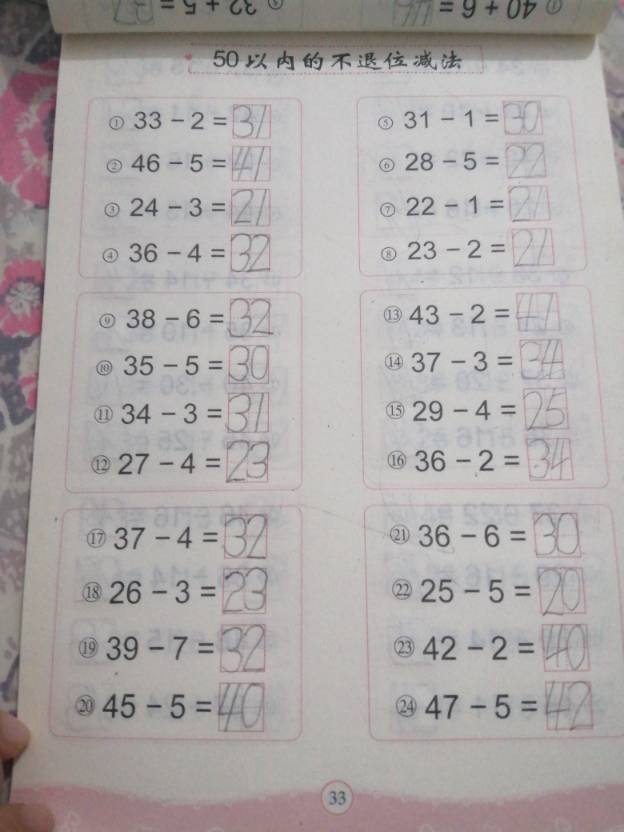 ① 40 + 6 = 46
⑤ 32 + 5 = 37
50以内的不退位减法
① 33 − 2 = 31
② 46 − 5 = 41
③ 24 − 3 = 21
④ 36 − 4 = 32
⑤ 31 − 1 = 30
⑥ 28 − 5 = 22
⑦ 22 − 1 = 21
⑧ 23 − 2 = 21
⑨ 38 − 6 = 32
⑩ 35 − 5 = 30
⑪ 34 − 3 = 31
⑫ 27 − 4 = 23
⑬ 43 − 2 = 41
⑭ 37 − 3 = 34
⑮ 29 − 4 = 25
⑯ 36 − 2 = 34
⑰ 37 − 4 = 32
⑱ 26 − 3 = 23
⑲ 39 − 7 = 32
⑳ 45 − 5 = 40
㉑ 36 − 6 = 30
㉒ 25 − 5 = 20
㉓ 42 − 2 = 40
㉔ 47 − 5 = 42
33